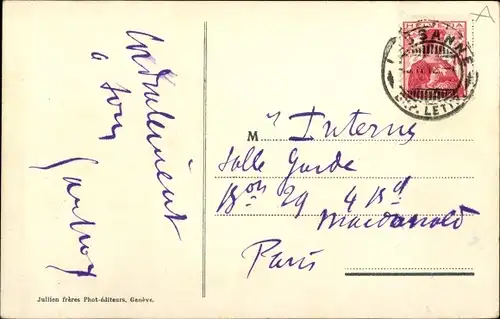 Cordialement
a tous
HELVETIA
LAUSANNE
EXP. LETTR.
M
Interne
Salle Garde
Bon 29 4 Bd
Macdonald
Paris
Jullien frères Phot-éditeurs, Genève.